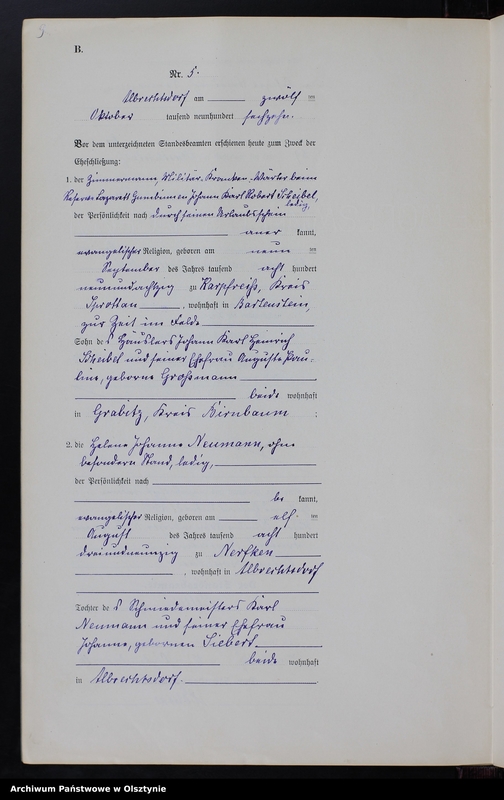 5
B.
Nr. 5.
Albrechtsdorf am zwölf ten
Oktober tausend neunhundert sechzehn.
Vor dem unterzeichneten Standesbeamten erschienen heute zum Zweck der
Eheschließung:
1. der Zimmermann, Militär-Kranken-Wärter beim
Reserve Lazarett Gumbinnen Johann Karl Robert Scheibel,
ledig,
der Persönlichkeit nach durch seinen Urlaubsschein
aner kannt,
evangelischer Religion, geboren am neun ten
September des Jahres tausend acht hundert
neunundachtzig zu Karpfreiß, Kreis
Sprottau, wohnhaft in Bartenstein,
zur Zeit im Felde
Sohn des Häuslers Johann Karl Heinrich
Scheibel und seiner Ehefrau Auguste Pau-
line, geborne Großmann
beide wohnhaft
in Grabitz, Kreis Birnbaum ;
2. die Helene Johanne Neumann, ohne
besondern Stand, ledig,
der Persönlichkeit nach
be kannt,
evangelischer Religion, geboren am elf ten
August des Jahres tausend acht hundert
dreiundneunzig zu Nerfken
, wohnhaft in Albrechtsdorf
Tochter des Schmiedemeisters Karl
Neumann und seiner Ehefrau
Johanne, gebornen Siebert
beide wohnhaft
in Albrechtsdorf.
Archiwum Państwowe w Olsztynie